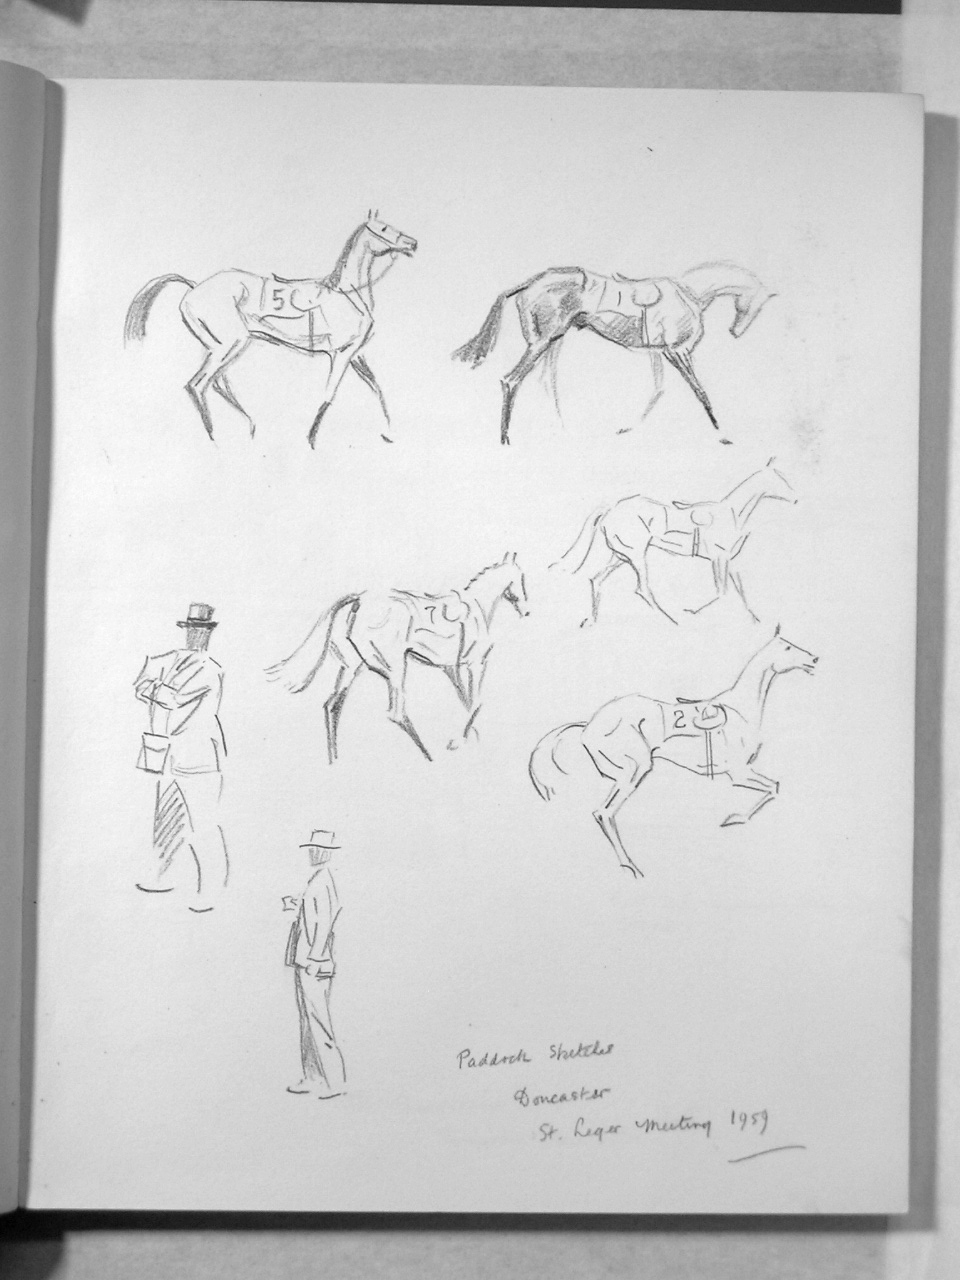 5
1
7
2
Paddock Sketches
Doncaster
St. Leger Meeting 1959